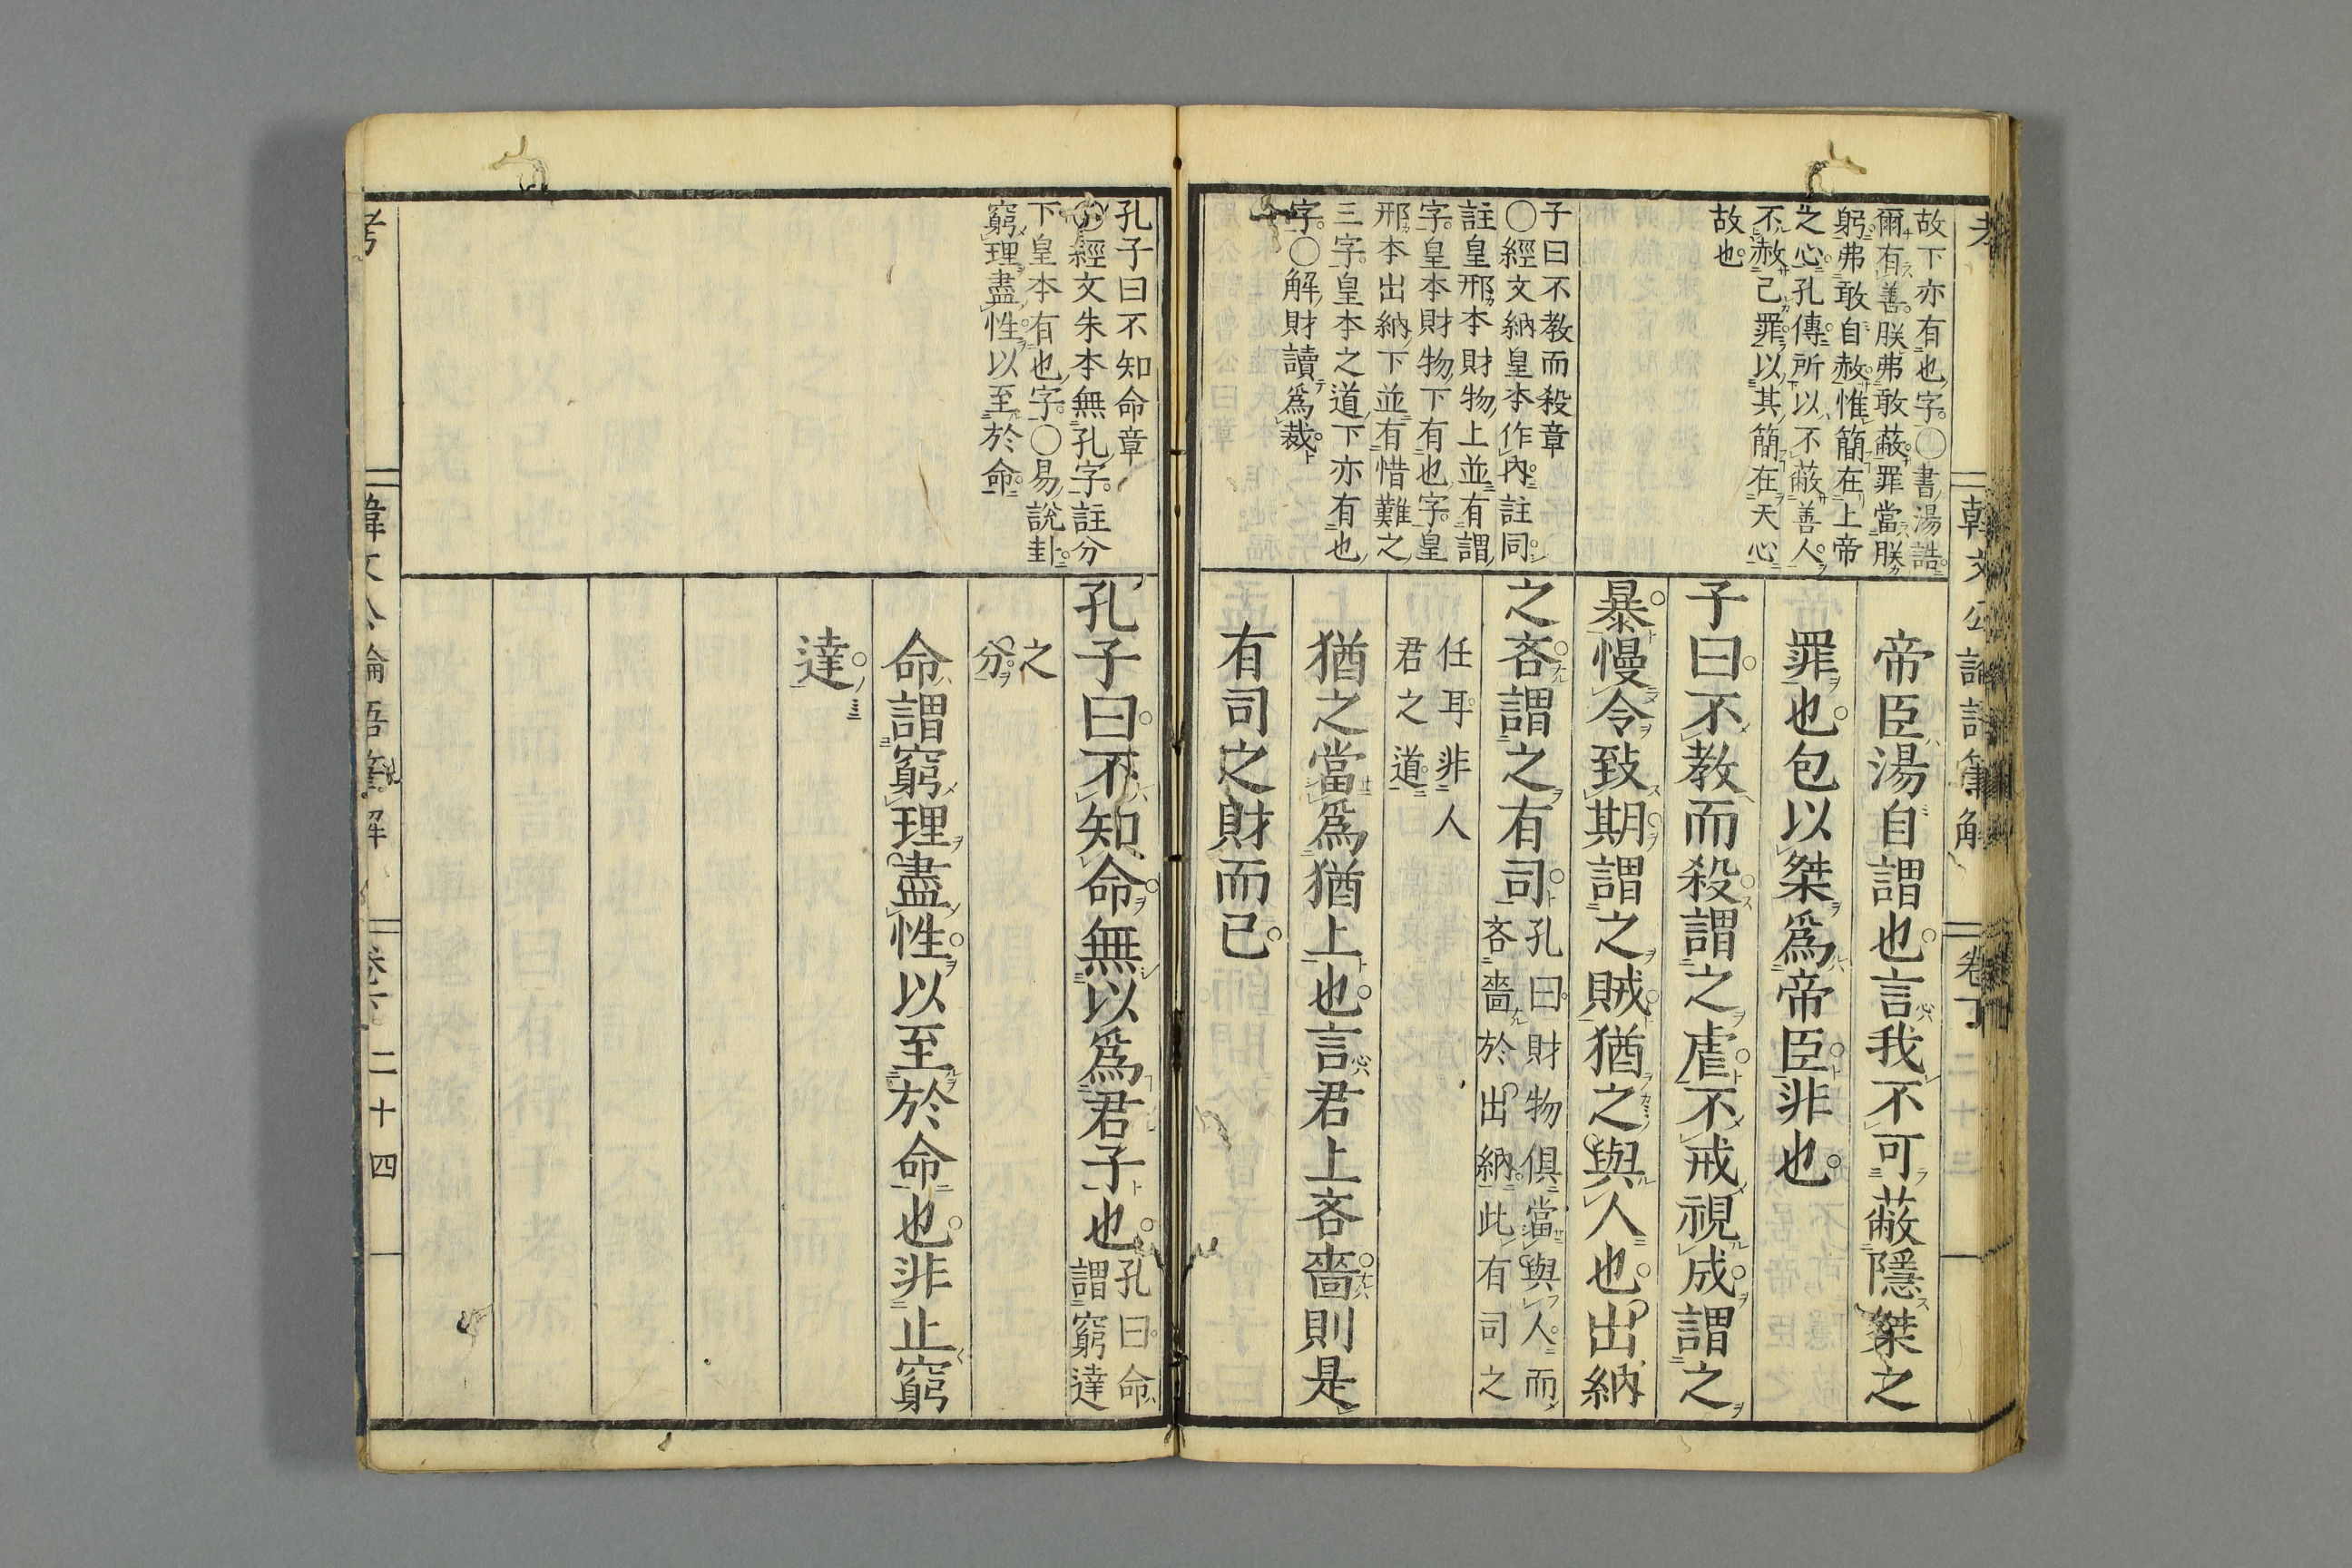 故下亦有也字○書湯誥
爾有善朕弗敢蔽罪當朕
躬弗敢自赦惟簡在上帝
之心孔傳所以不蔽善人
不赦己罪以其簡在天心
故也
子曰不教而殺章
○經文納皇本作內註同
註皇邢本財物上並有謂
字皇本財物下有也字皇
邢本出納下並有惜難之
三字皇本之道下亦有也
字○解財讀爲裁
帝臣湯自謂也言我不可蔽隱桀之
罪也包以桀爲帝臣非也
子曰不教而殺謂之虐不戒視成謂之
暴慢令致期謂之賊猶之與人也出納
之吝謂之有司
孔曰財物俱當與人而
吝嗇於出納此有司之
任耳非人
君之道
猶之當爲猶上也言君上吝嗇則是
有司之財而已
孔子曰不知命章
○經文朱本無孔字註分
下皇本有也字○易說卦
窮理盡性以至於命
孔子曰不知命無以爲君子也
孔曰命
謂窮達
之
分
命謂窮理盡性以至於命也非止窮
達
考
韓文公論語筆解
卷下
二十四